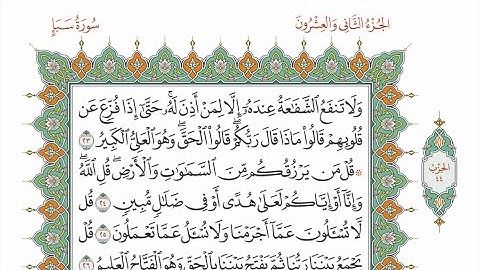 الجُزْءُ الثَّانِي وَالعِشْرُونَ
سُورَةُ سَبَإٍ
وَلَا تَنفَعُ الشَّفَاعَةُ عِندَهُۥٓ إِلَّا لِمَنْ أَذِنَ لَهُۥۚ حَتَّىٰٓ إِذَا فُزِّعَ عَن
قُلُوبِهِمْ قَالُوا۟ مَاذَا قَالَ رَبُّكُمْۖ قَالُوا۟ الْحَقَّۖ وَهُوَ الْعَلِيُّ الْكَبِيرُ ٢٣
۞ قُلْ مَن يَرْزُقُكُم مِّنَ السَّمَٰوَٰتِ وَالْأَرْضِۖ قُلِ اللَّهُۖ
وَإِنَّآ أَوْ إِيَّاكُمْ لَعَلَىٰ هُدًى أَوْ فِى ضَلَٰلٍ مُّبِينٍ ٢٤ قُل
لَّا تُسْـَٔلُونَ عَمَّآ أَجْرَمْنَا وَلَا نُسْـَٔلُ عَمَّا تَعْمَلُونَ ٢٥ قُلْ
يَجْمَعُ بَيْنَنَا رَبُّنَا ثُمَّ يَفْتَحُ بَيْنَنَا بِالْحَقِّ وَهُوَ الْفَتَّاحُ الْعَلِيمُ ٢٦
الحِزْبُ
٤٤